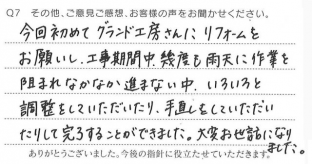 Q7 その他、ご意見ご感想、お客様の声をお聞かせください。
今回初めてグランド工房さんにリフォームを
お願いし、工事期間中幾度も雨天に作業を
阻まれなかなか進まない中、いろいろと
調整をしていただいたり、手直しをしていただい
たりして完了することができました。大変お世話になり
ました。
ありがとうございました。今後の指針に役立たせていただきます。